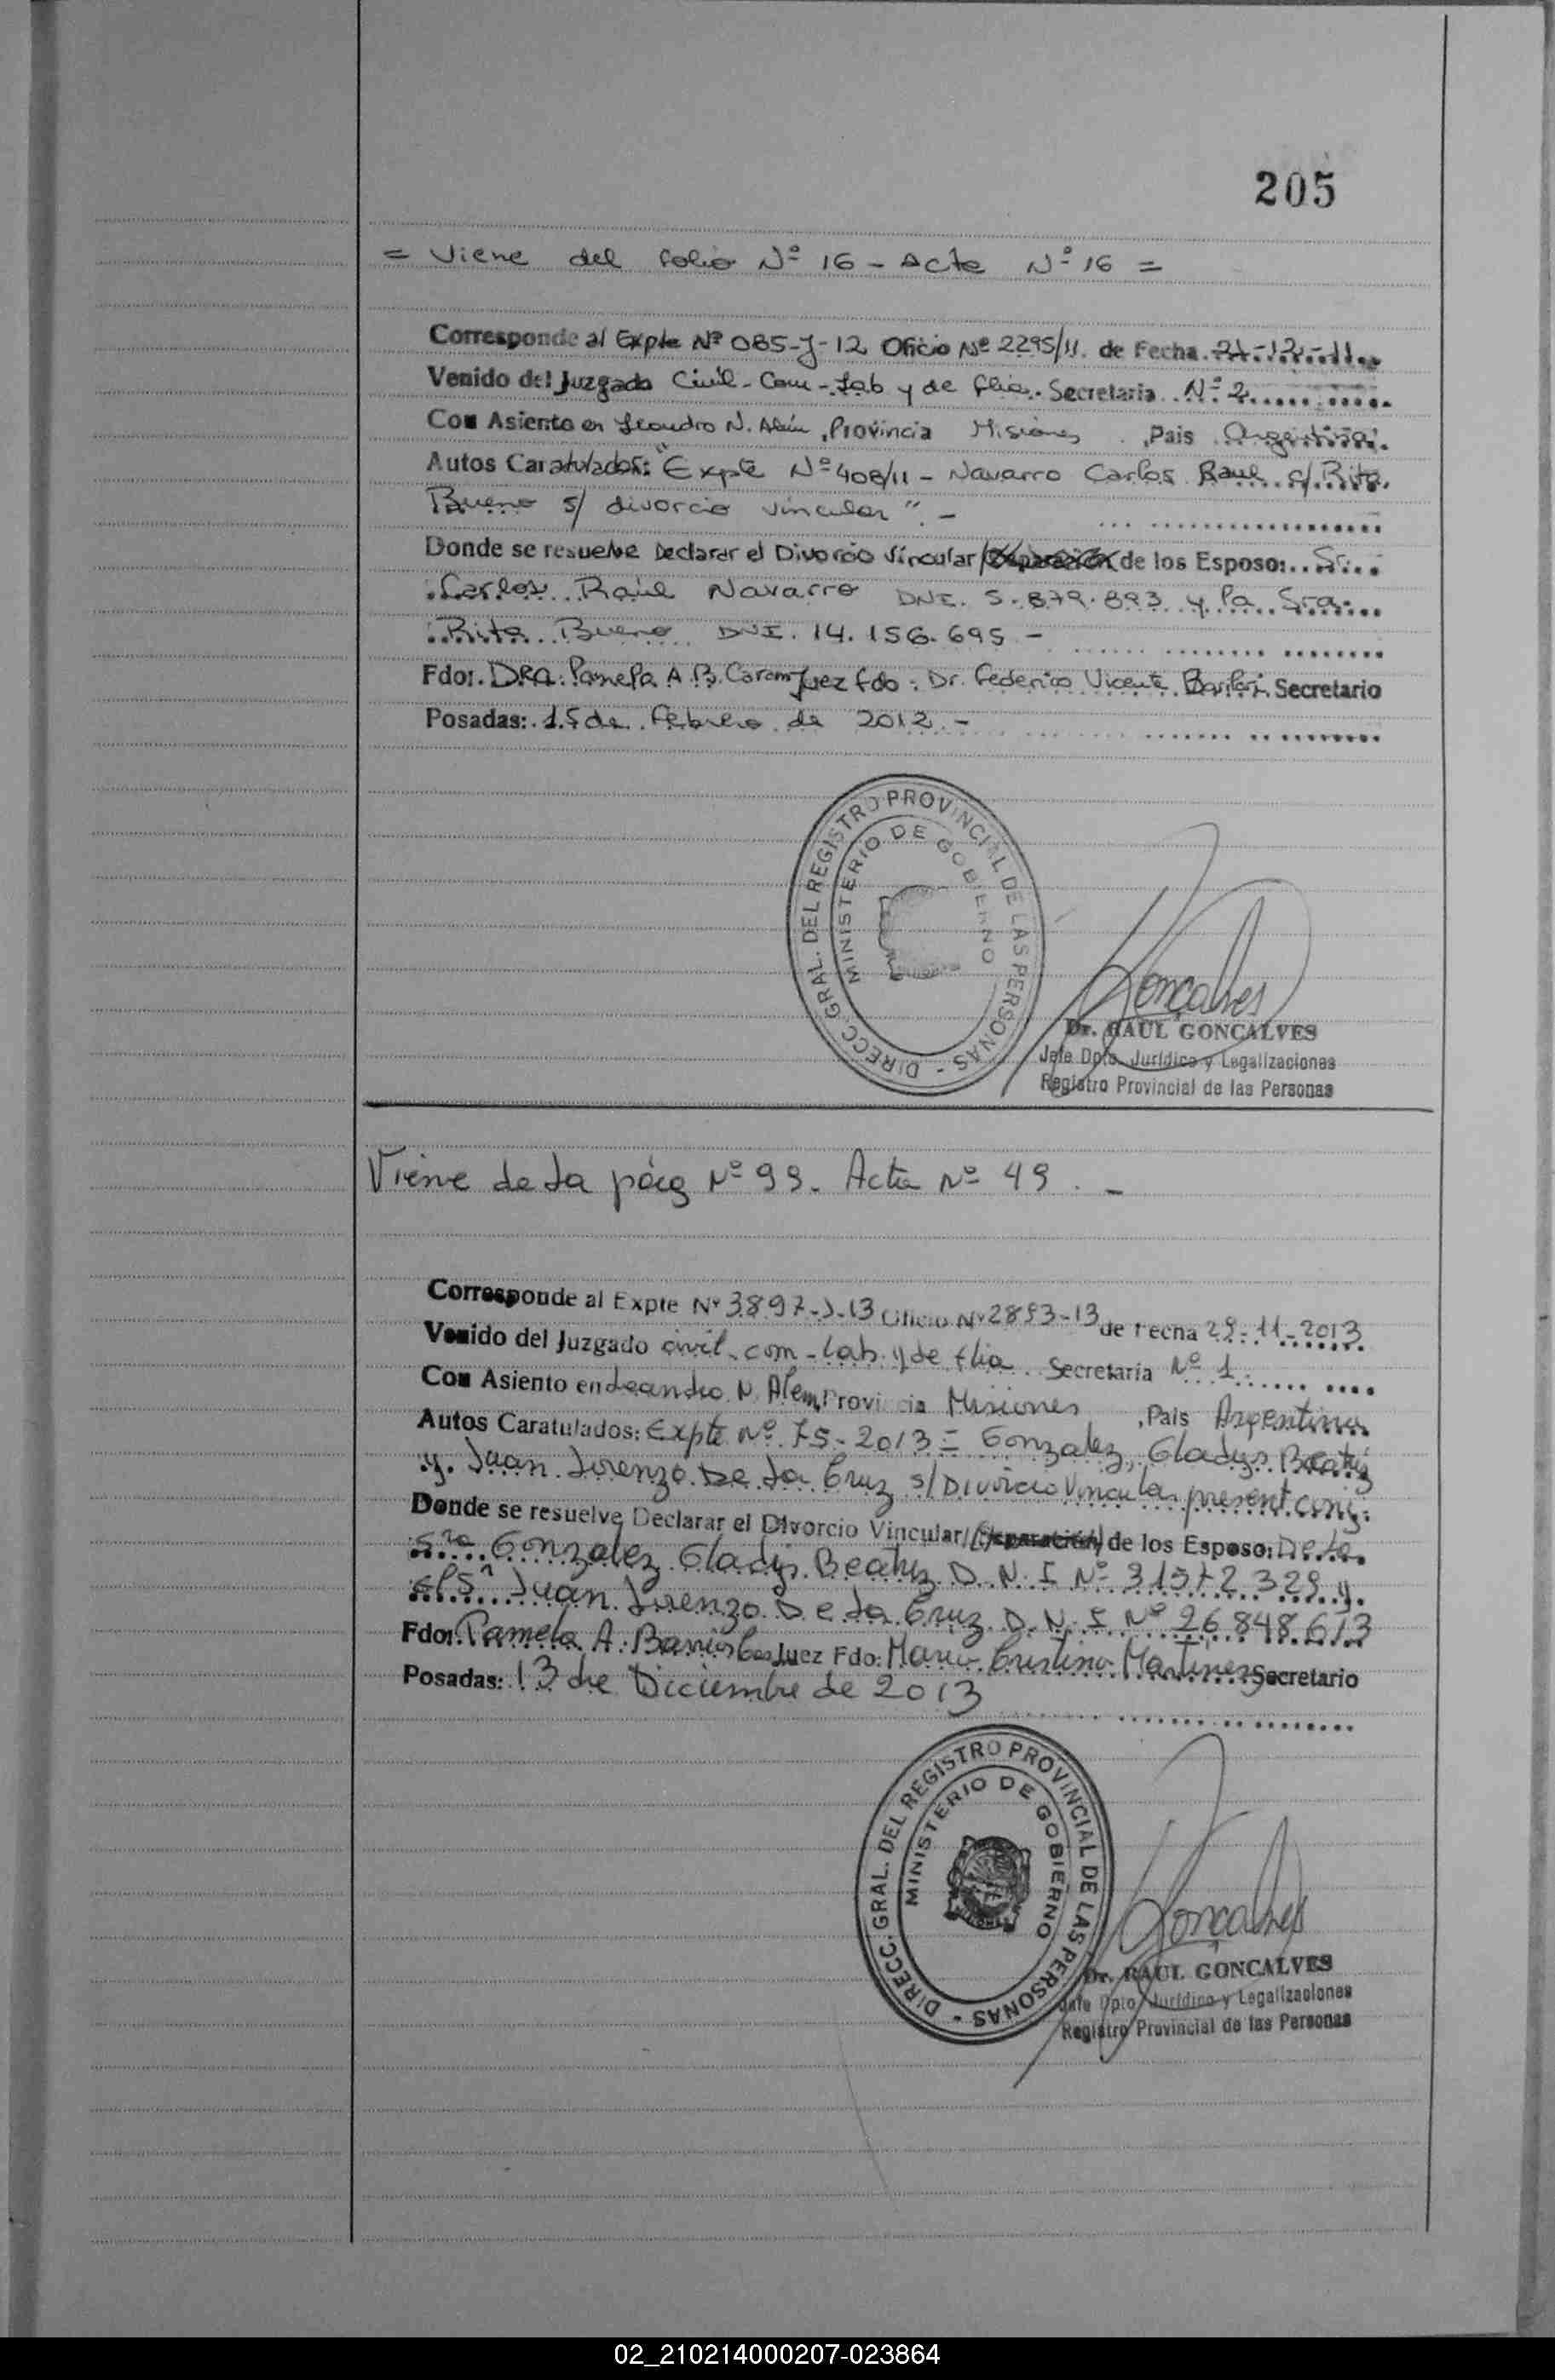 205
= Viene del folio Nº 16 - Acta Nº 16 =
Corresponde al Expte Nº 085-J-12 Oficio Nº 2295/11. de Fecha. 21-12-11.
Venido del Juzgado Civil - Com - Lab y de flia. Secretaria Nº 2
Con Asiento en Leandro N. Alem, Provincia Misiones, Pais Argentina.
Autos Caratulados: "Expte Nº 408/11 - Navarro Carlos Raul c/ Rita
Bueno s/ divorcio vincular". -
Donde se resuelve Declarar el Divorcio Vincular/ de los Esposo: Sr.
Carlos Raúl Navarro DNI. 5.879.893 y la Sra.
Rita Bueno DNI. 14.156.695 -
Fdo: DRA. Pamela A. B. Juez fdo: Dr. Federico Vicente Secretario
Posadas: 15 de febrero de 2012. -
DIRECC. GRAL. DEL REGISTRO PROVINCIAL DE LAS PERSONAS -
MINISTERIO DE GOBIERNO
Goncalves
Dr. RAUL GONCALVES
Jefe Dpto. Jurídico y Legalizaciones
Registro Provincial de las Personas
Viene de La pág Nº 99. Acta Nº 49. -
Corresponde al Expte Nº 3897-J-13 Oficio Nº 2893-13 de Fecha 29-11-2013
Venido del Juzgado civil. com - lab. y de flia Secretaría Nº 1
Con Asiento en Leandro N. Alem, Provincia Misiones, País Argentina
Autos Caratulados: Expte Nº 75-2013 = Gonzalez, Gladys Beatriz
y Juan Lorenzo De La Cruz s/ Divorcio Vincular present. conj.
Donde se resuelve Declarar el Divorcio Vincular/(Separación) de los Esposo: De La
Sra Gonzalez Gladys Beatriz D.N.I Nº 31572329 y
el Sr Juan Lorenzo De La Cruz D.N.I Nº 26.848.673
Fdo: Pamela A. Barrios Juez Fdo: Maria Cristina Martinez Secretario
Posadas: 13 de Diciembre de 2013
DIRECC. GRAL. DEL REGISTRO PROVINCIAL DE LAS PERSONAS -
MINISTERIO DE GOBIERNO
Goncalves
Dr. RAUL GONCALVES
Jefe Dpto. Jurídico y Legalizaciones
Registro Provincial de las Personas
02_210214000207-023864